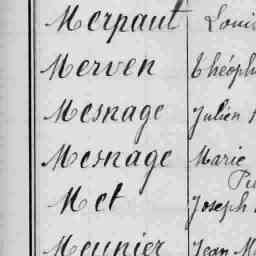 Merpaut Louis
Merven Théoph
Mesnage Julien
Mesnage Marie
Met Joseph
Meunier Jean M